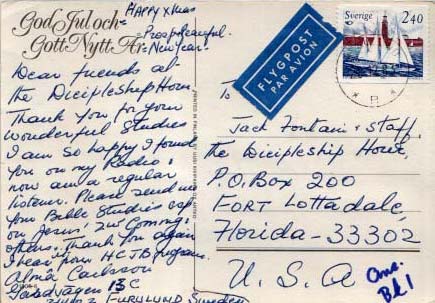 God Jul och
Gott Nytt År
Happy Xmas
= Prosp & peaceful
= New Year =
Dear friends at
the Dicipleship Hour.
Thank you for your
wonderful Studies
I am so happy I found
you on my Radio,
now am a regular
listener. Please send me
you Bible Studies esp.
on Jesus' 2nd Coming,
others. Thank you again
I hear your HCJB program.
Alma Carlsson
13 C
FURULUND Sweden
PRINTED IN FINLAND
FLYGPOST
PAR AVION
Sverige
2.40
B
To
Jack Fontain & staff,
The Dicipleship Hour,
P.O. Box 200
FORT Lottadale,
Florida - 33302
U. S. A
Ans.
Bk 1